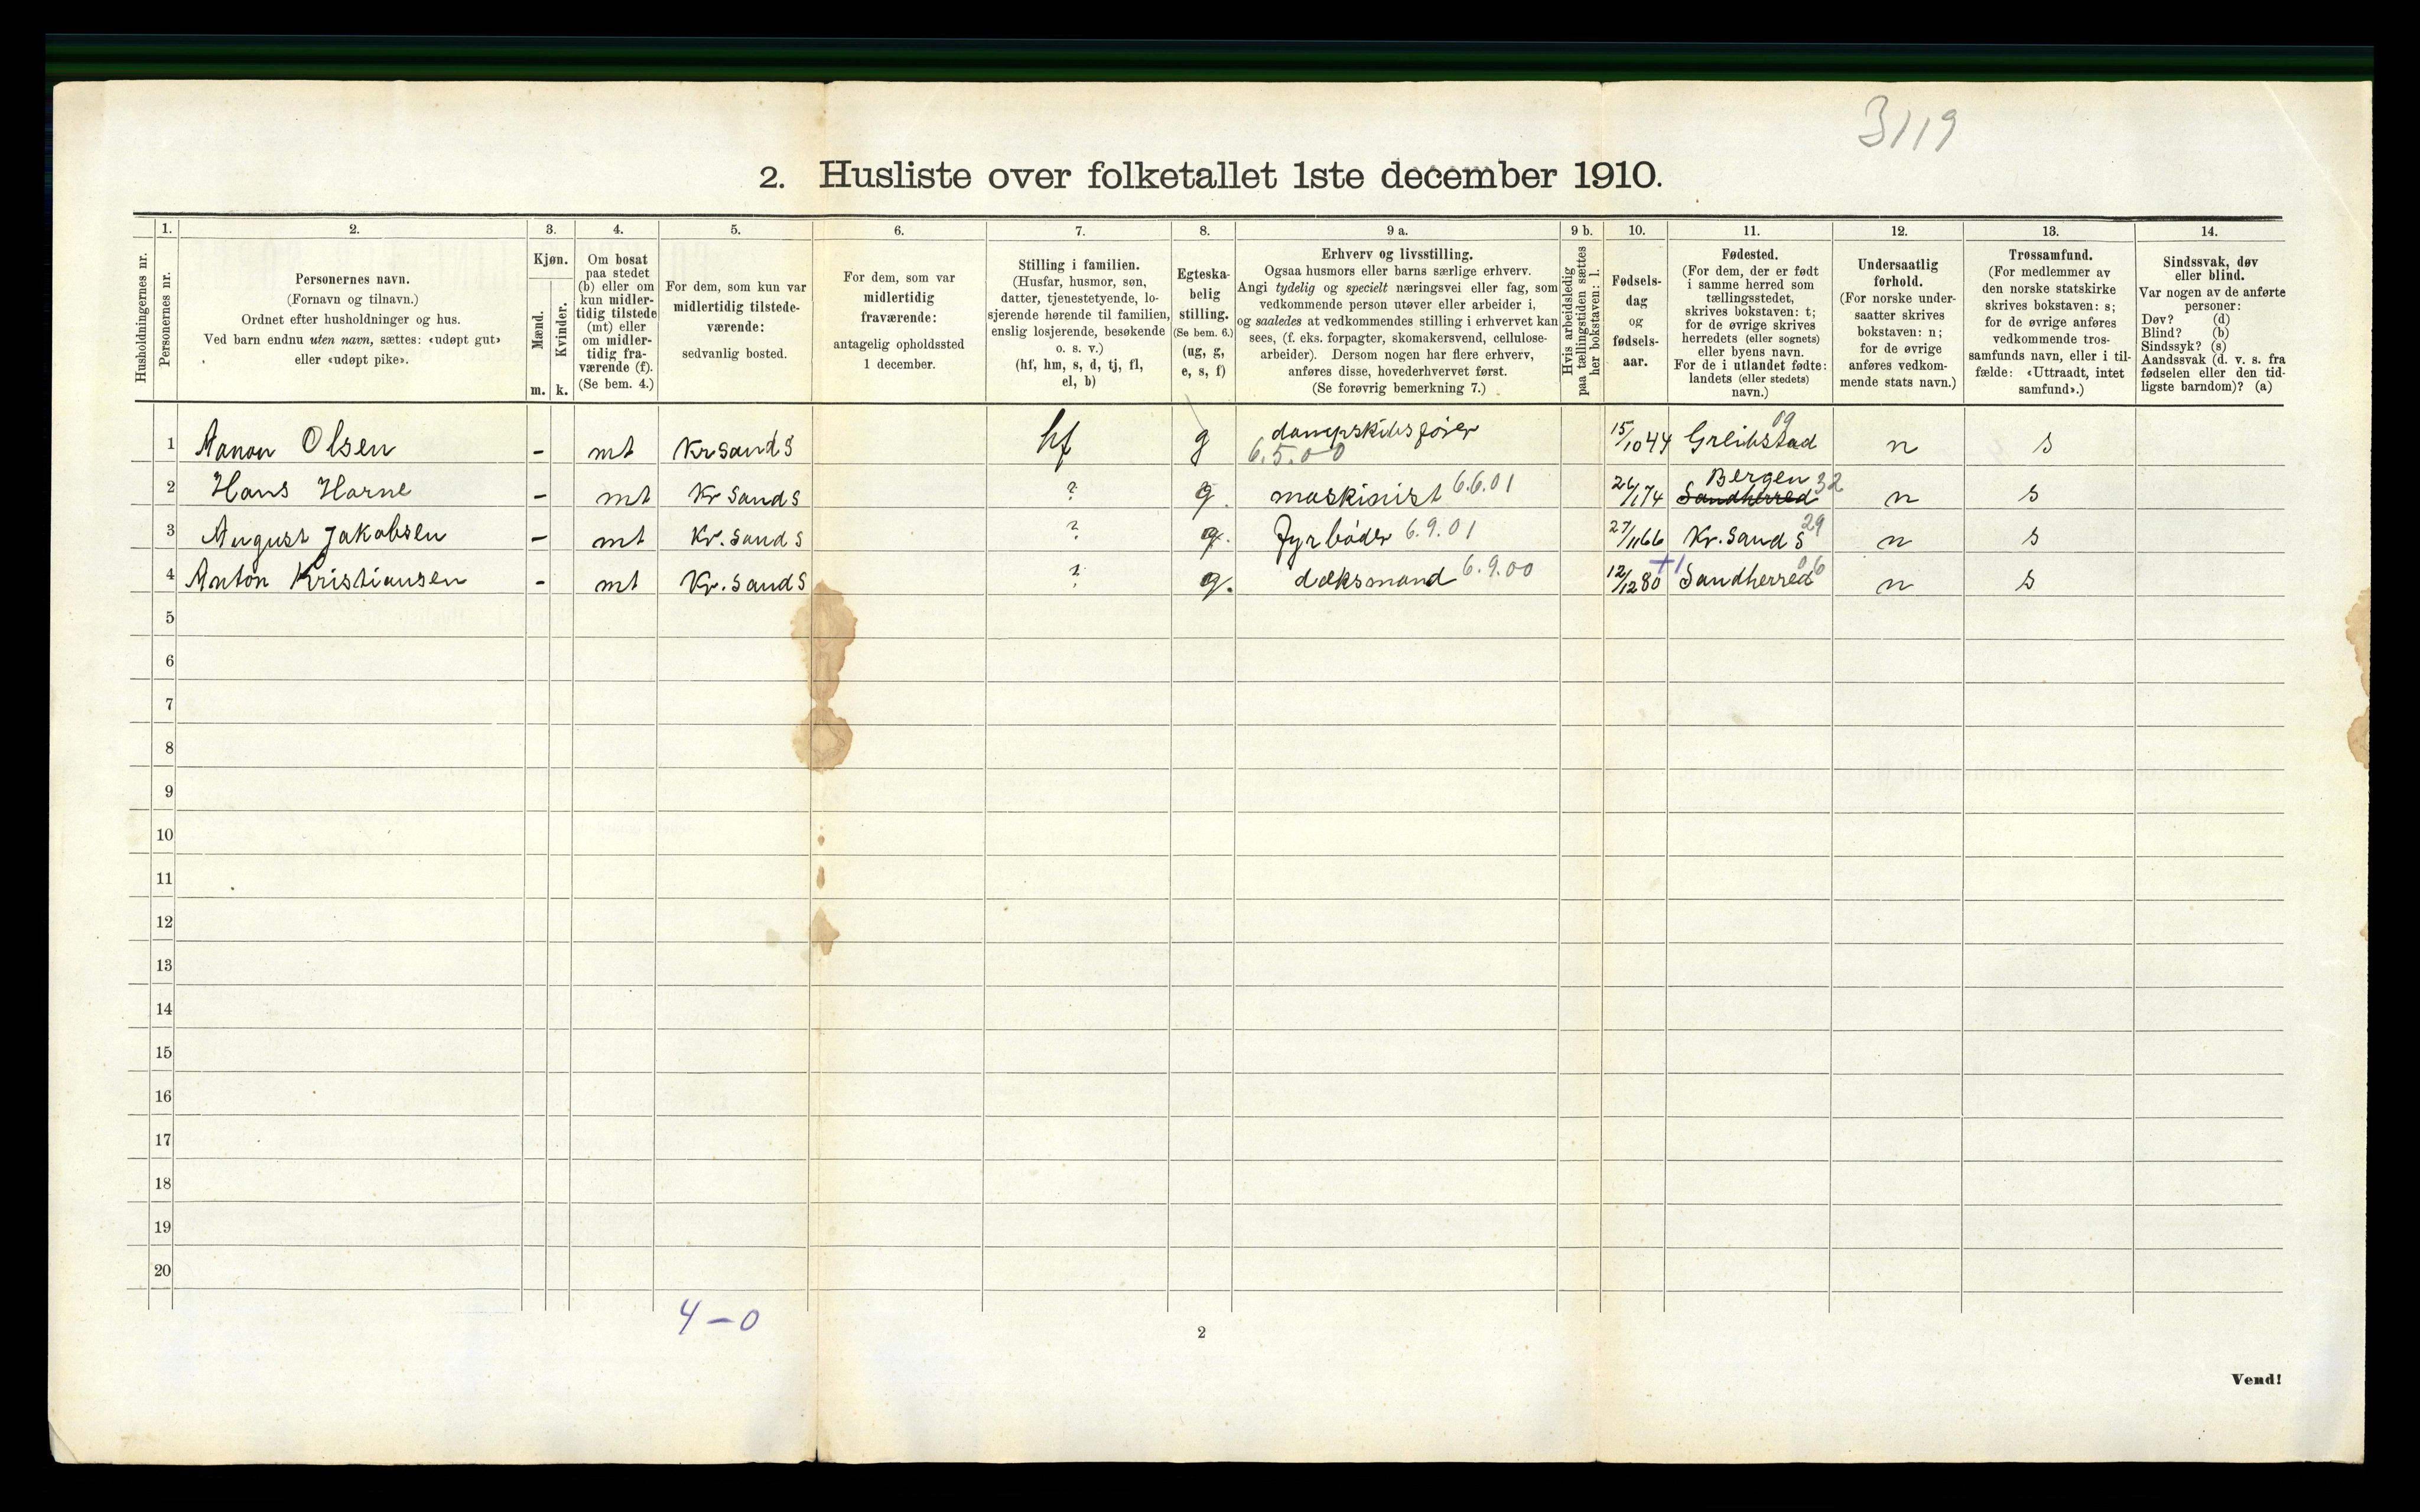 3119
2. Husliste over folketallet 1ste december 1910.
Husholdningernes nr.
1.
Personernes nr.
2.
Personernes navn.
(Fornavn og tilnavn.)
Ordnet efter husholdninger og hus.
Ved barn endnu uten navn, sættes: «udøpt gut»
eller «udøpt pike».
3.
Kjøn.
Mænd.
Kvinder.
m. k.
4.
Om bosat
paa stedet
(b) eller om
kun midler-
tidig tilstede
(mt) eller
om midler-
tidig fra-
værende (f).
(Se bem. 4.)
5.
For dem, som kun var
midlertidig tilstede-
værende:
sedvanlig bosted.
6.
For dem, som var
midlertidig
fraværende:
antagelig opholdssted
1 december.
7.
Stilling i familien.
(Husfar, husmor, søn,
datter, tjenestetyende, lo-
sjerende hørende til familien,
enslig losjerende, besøkende
o. s. v.)
(hf, hm, s, d, tj, fl,
el, b)
8.
Egteska-
belig
stilling.
(Se bem. 6.)
(ug, g,
e, s, f)
9 a.
Erhverv og livsstilling.
Ogsaa husmors eller barns særlige erhverv.
Angi tydelig og specielt næringsvei eller fag, som
vedkommende person utøver eller arbeider i,
og saaledes at vedkommendes stilling i erhvervet kan
sees, (f. eks. forpagter, skomakersvend, cellulose-
arbeider). Dersom nogen har flere erhverv,
anføres disse, hovederhvervet først.
(Se forøvrig bemerkning 7.)
9 b.
Hvis arbeidsledig
paa tællingstiden sættes
her bokstaven: l.
10.
Fødsels-
dag
og
fødsels-
aar.
11.
Fødested.
(For dem, der er født
i samme herred som
tællingsstedet,
skrives bokstaven: t;
for de øvrige skrives
herredets (eller sognets)
eller byens navn.
For de i utlandet fødte:
landets (eller stedets)
navn.)
12.
Undersaatlig
forhold.
(For norske under-
saatter skrives
bokstaven: n;
for de øvrige
anføres vedkom-
mende stats navn.)
13.
Trossamfund.
(For medlemmer av
den norske statskirke
skrives bokstaven: s;
for de øvrige anføres
vedkommende tros-
samfunds navn, eller i til-
fælde: «Uttraadt, intet
samfund».)
14.
Sindssvak, døv
eller blind.
Var nogen av de anførte
personer:
Døv? (d)
Blind? (b)
Sindssyk? (s)
Aandssvak (d. v. s. fra
fødselen eller den tid-
ligste barndom)? (a)
1 Aanon Olsen - mt Kr sand S hf g dampskibsfører 6.5.00 15/10 44 Greibstad 09 n s
2 Hans Horne - mt Kr sand S ? g. maskinist 6.6.01 26/1 74 Bergen 32 Sandherred n s
3 August Jakobsen - mt Kr. sand S ? g. Fyrbøder 6.9.01 27/11 66 Kr. sand S 29 n s
4 Anton Kristiansen - mt Kr. sand S ? g. dæksmand 6.9.00 12/12 80 +1 Sandherred 06 n s
5
6
7
8
9
10
11
12
13
14
15
16
17
18
19
20
4 – 0
2
Vend!